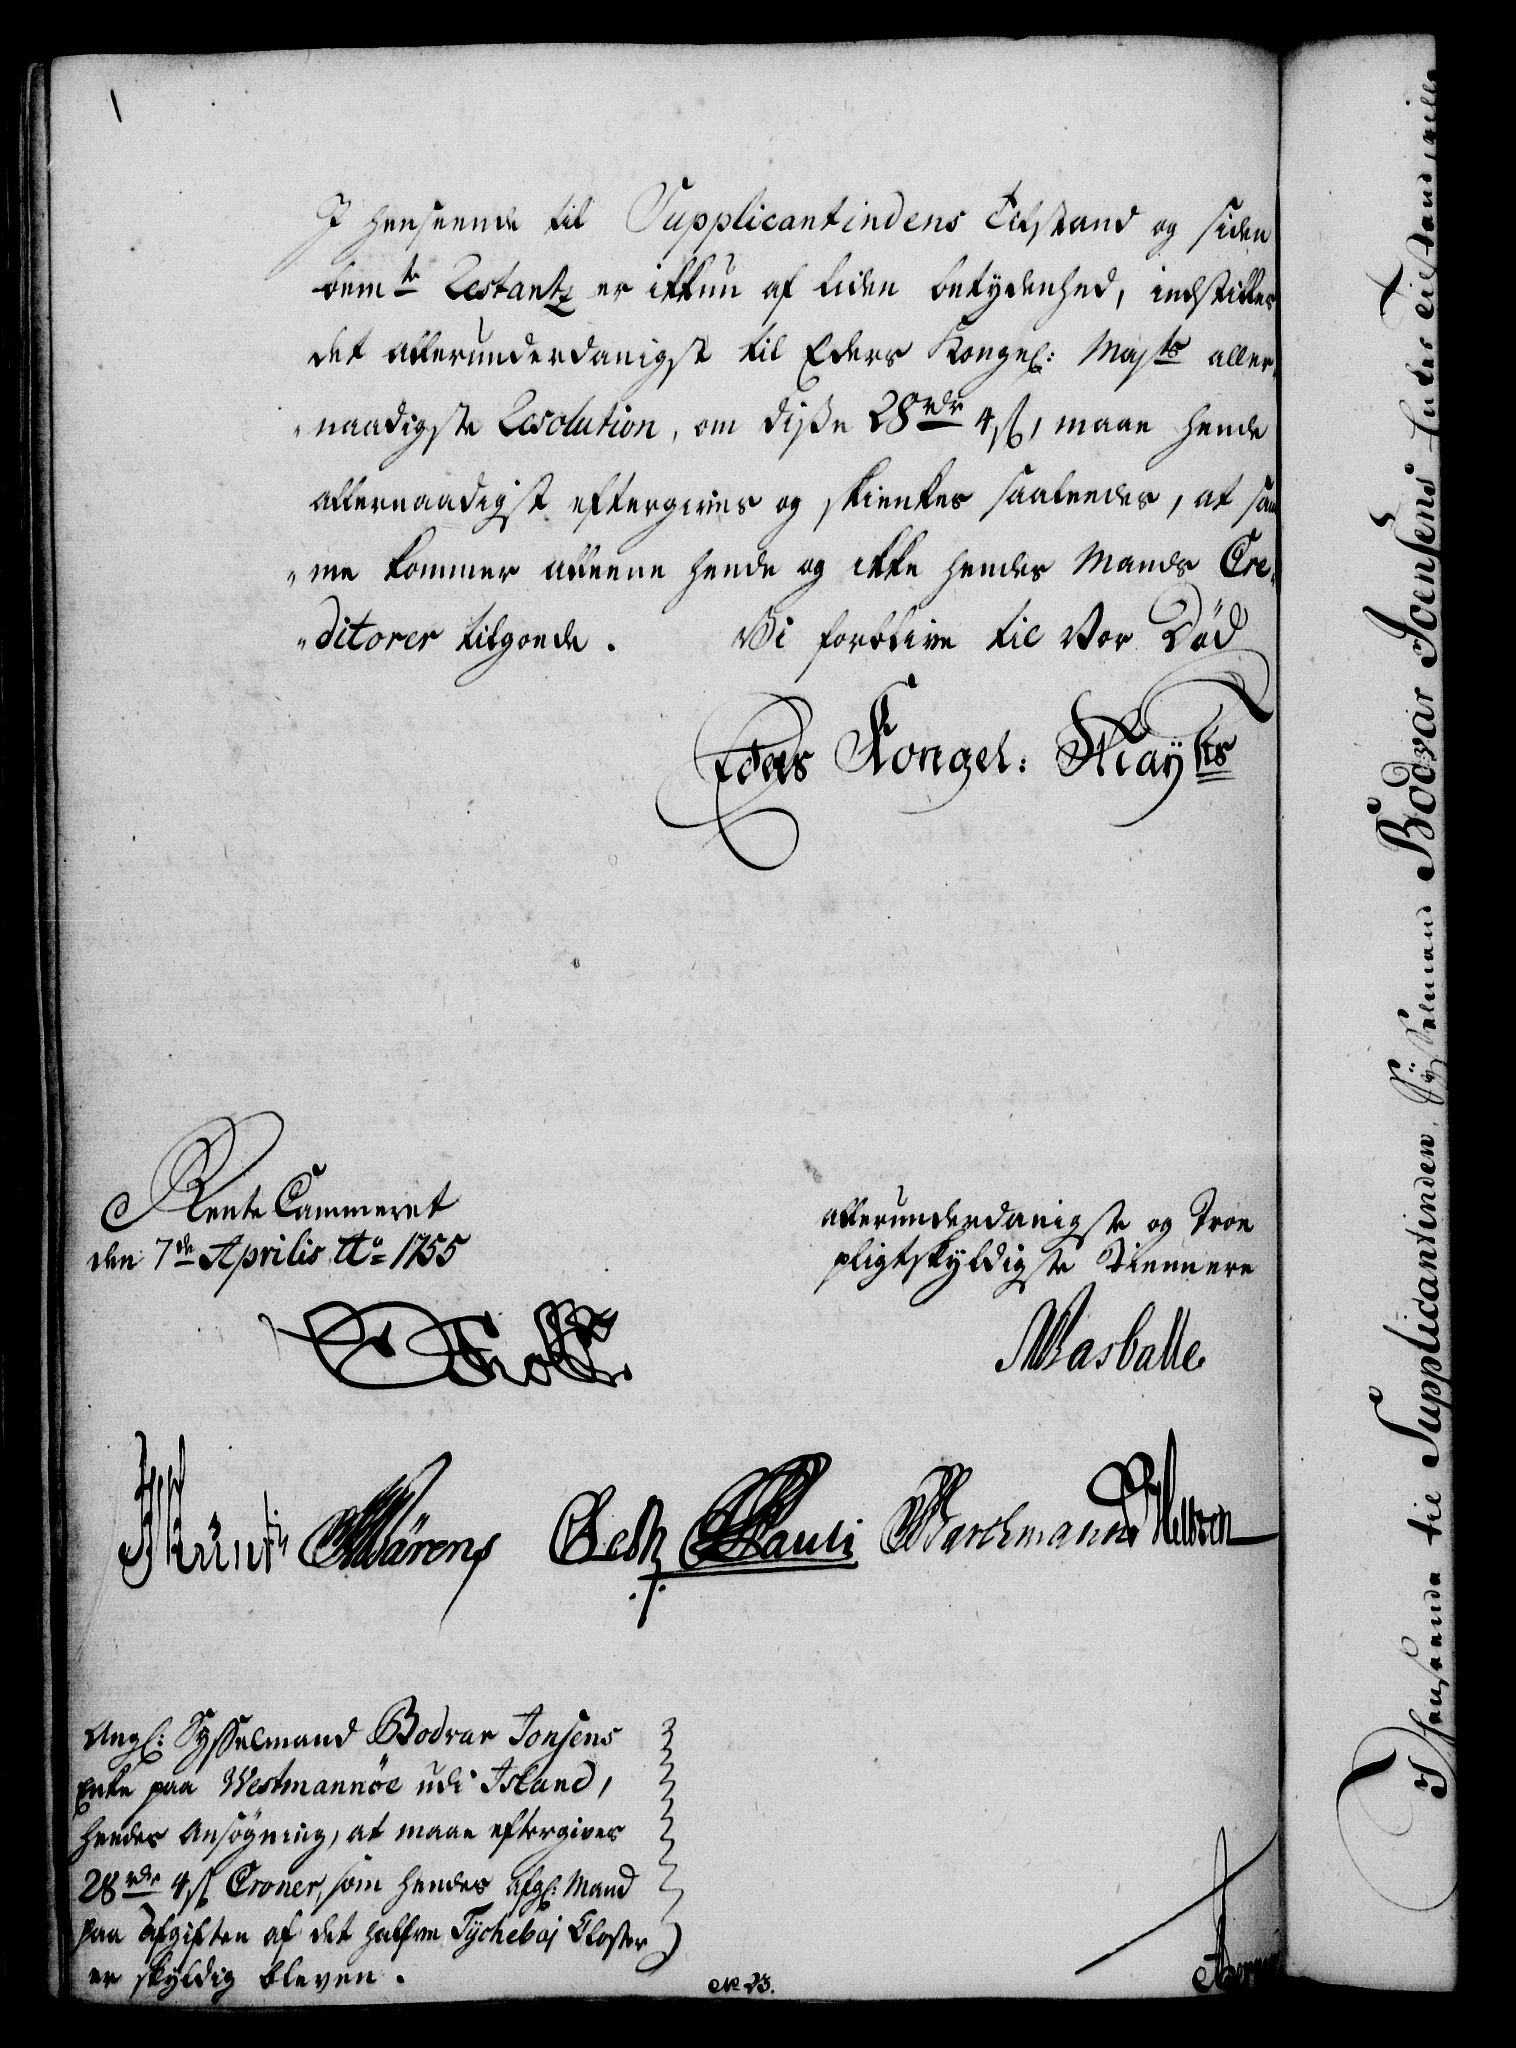 I henseende til Supplicantindens Tilstand og siden
bemte Restantz er ikkun af liden betydenhed, indstilles
det allerunderdanigst til Eders Kongel: Majts aller„
„naadigste Resolution, om disse 28 rdr 4 ß, maae hende
allernaadigst eftergives og skienkes saaledes, at sam
„me kommer alleene hende og ikke hendes Mands Cre„
„ditorer tilgode. Vi forblive til Vor Död
Eders Kongel: Mayts
Rente Cammeret
den 7de Aprilis Ao 1755
allerunderdanigste og Troe
pligtskyldigste Tiennere
Holst
Masballe
Wärens
Pauli Barchmann
Ang: Sysselmand Bodvar Jonsens
Enke paa Westmannöe udi Island,
hendes Ansögning, at maae eftergives
28 rdr 4 ß Croner, som hendes afg: Mand
paa Afgiften af det halfve Tychebaj Closter
er skyldig bleven.
No 23.
I henseende til Supplicantinden, Sÿsselmand Bodvar Joensens Enkes Tilstand